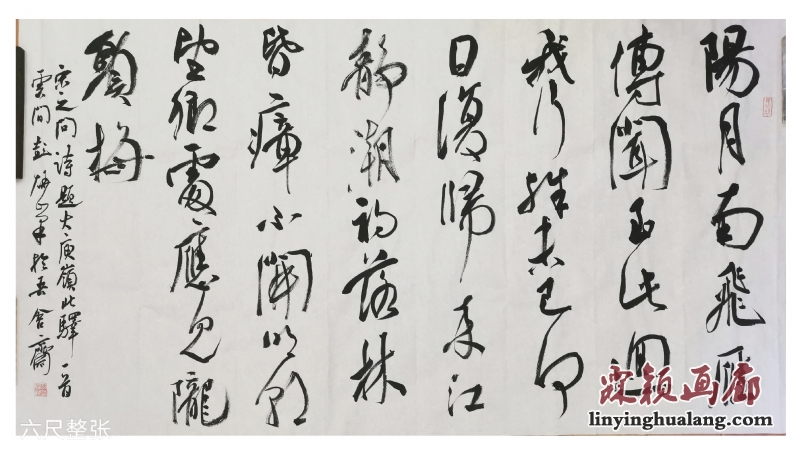 陽月南飛雁
傳聞至此回
我行殊未已何
日復歸来江
静潮初落林
昏瘴不開明朝
望鄉處應見隴
頭梅
宋之问诗題大庾嶺北驛一首
雲间彭 於吾舍齋
六尺整张
霖颖画廊
linyinghualang.com